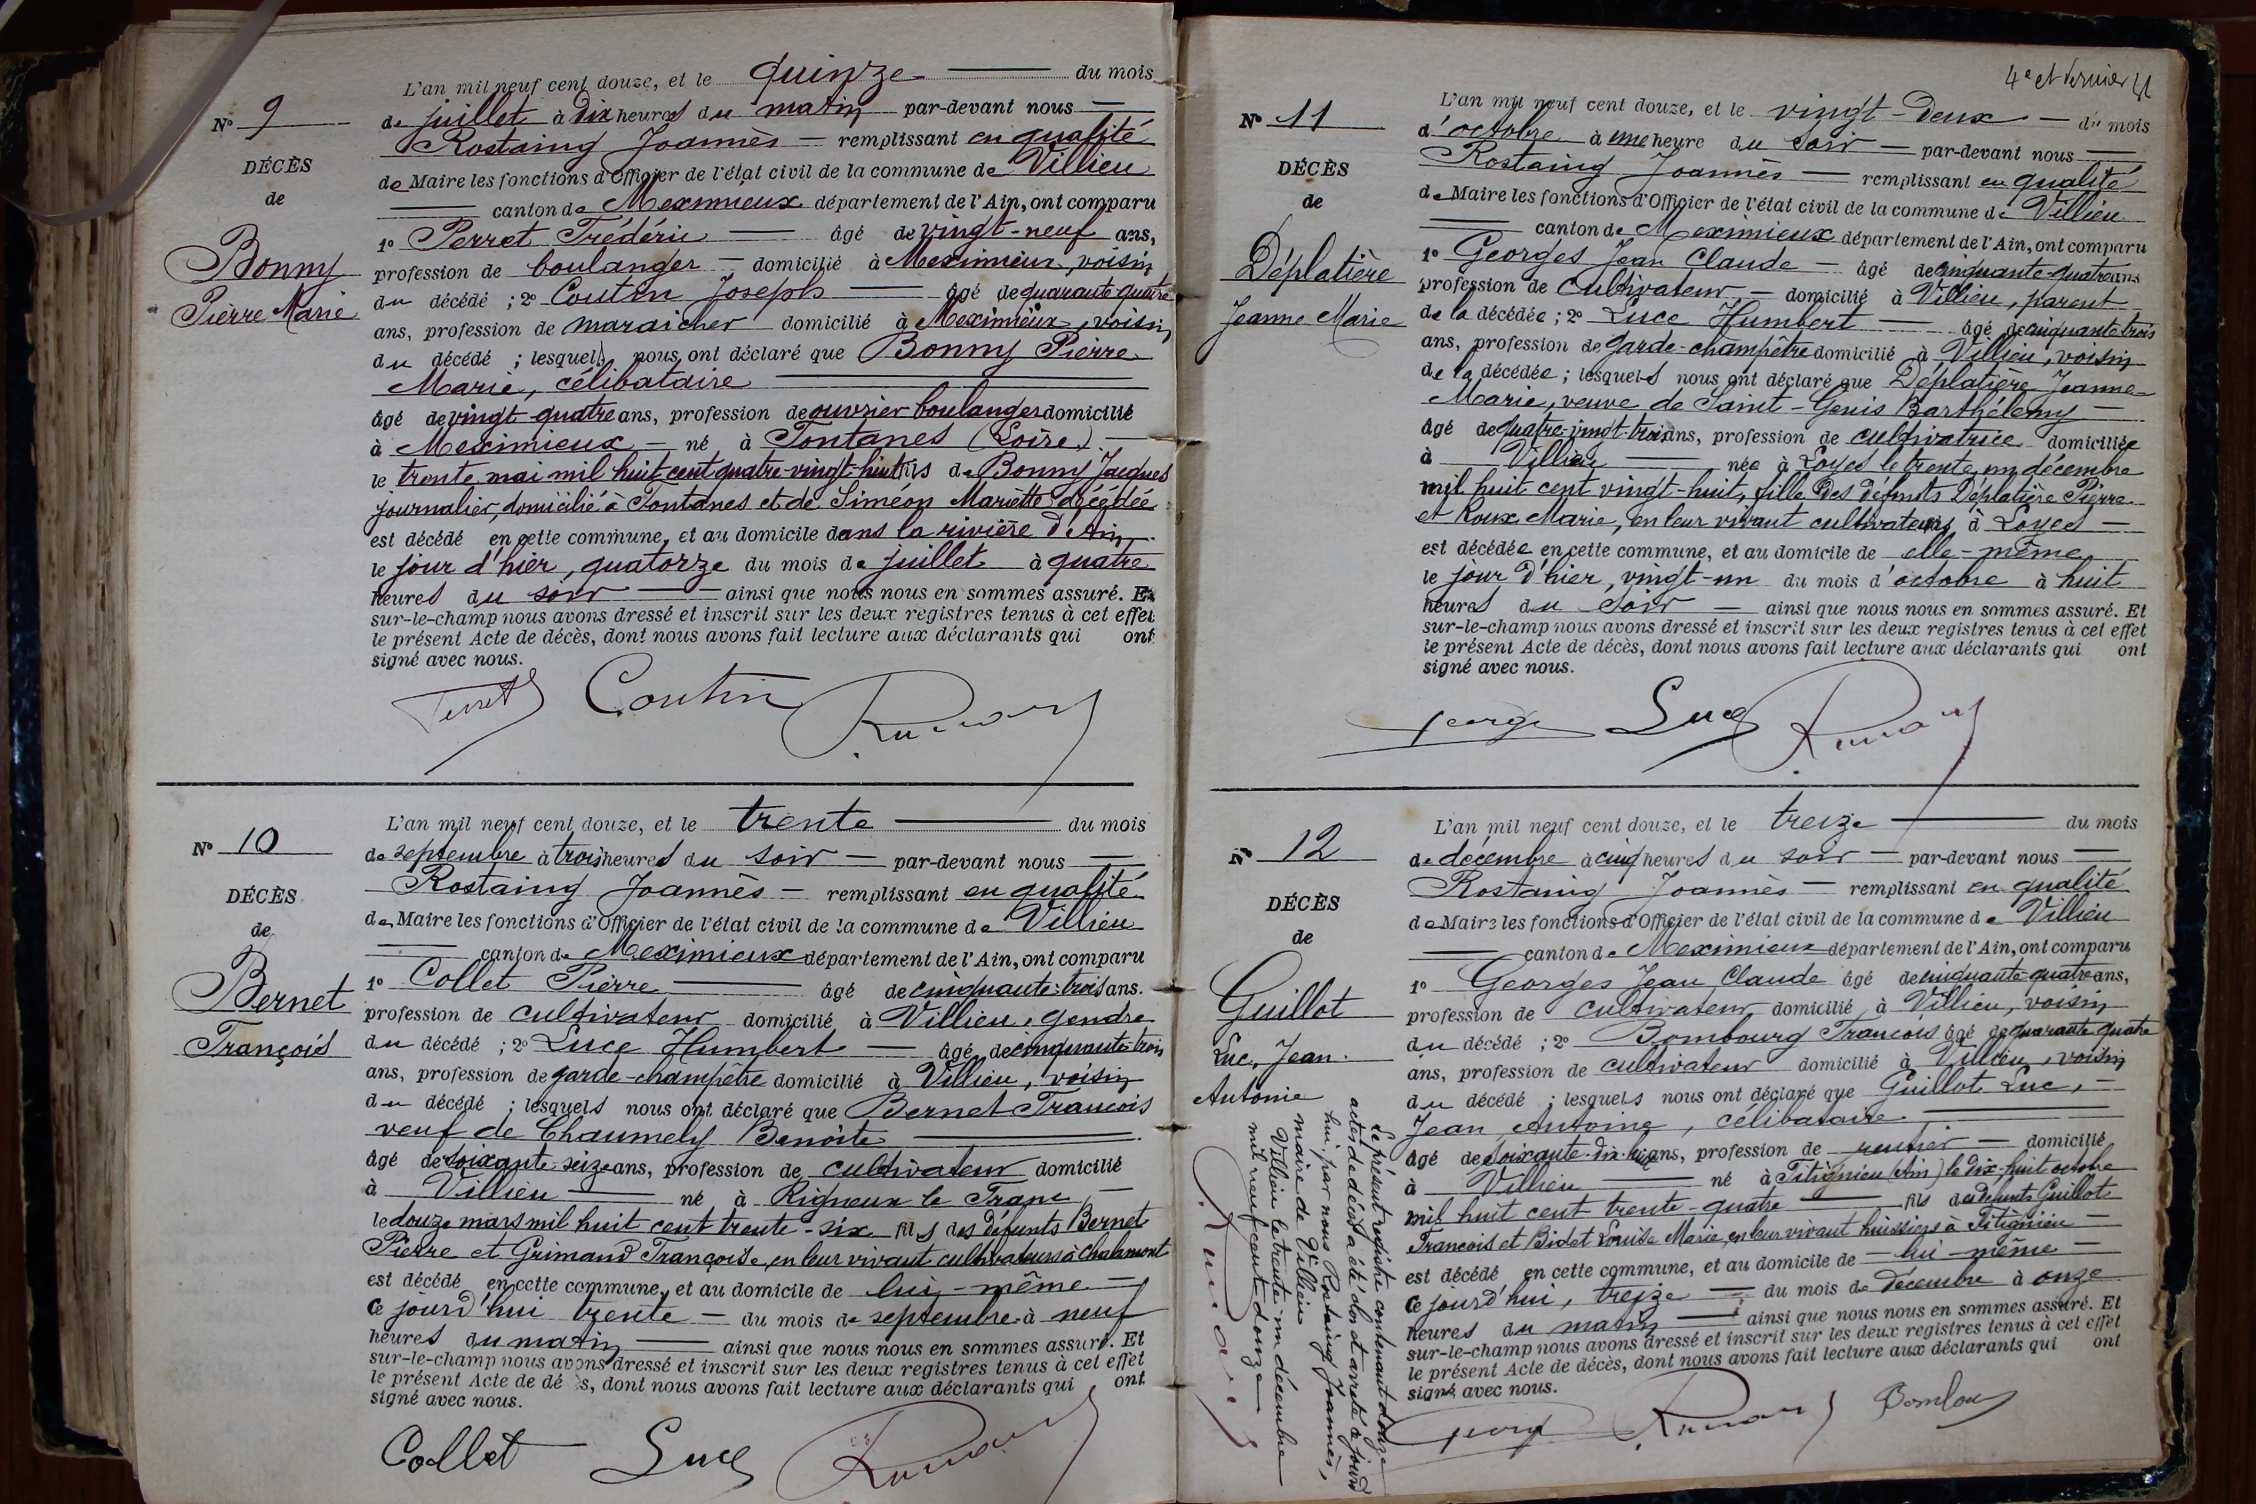 L'an mil neuf cent douze, et le quinze du mois
N° 9
de juillet à dix heures du matin par-devant nous
Rostaing Joannès remplissant en qualité
DÉCÈS
de Maire les fonctions d'Officier de l'état civil de la commune de Villieu
de
canton de Meximieux département de l'Ain, ont comparu
1° Perret Frédéric âgé de vingt-neuf ans,
Bonny
profession de boulanger domicilié à Meximieux, voisin
Pierre Marie
du décédé ; 2° Coutin Joseph âgé de quarante quatre
ans, profession de maraicher domicilié à Meximieux, voisin
du décédé ; lesquels nous ont déclaré que Bonny Pierre
Marie, célibataire
âgé de vingt-quatre ans, profession de ouvrier boulanger domicilié
à Meximieux né à Fontanes (Loire)
le trente mai mil huit cent quatre-vingt-huit fils de Bonny Jacques
journalier, domicilié à Fontanes et de Siméon Mariette décédée
est décédé en cette commune, et au domicile dans la rivière d'Ain
le jour d'hier, quatorze du mois de juillet à quatre
heures du soir ainsi que nous nous en sommes assuré. Et
sur-le-champ nous avons dressé et inscrit sur les deux registres tenus à cet effet
le présent Acte de décès, dont nous avons fait lecture aux déclarants qui ont
signé avec nous.
Perret Coutin
L'an mil neuf cent douze, et le trente du mois
N° 10
de septembre à trois heures du soir par-devant nous
Rostaing Joannès remplissant en qualité
DÉCÈS
de Maire les fonctions d'Officier de l'état civil de la commune de Villieu
de
canton de Meximieux département de l'Ain, ont comparu
1° Collet Pierre âgé de cinquante-trois ans.
Bernet
profession de cultivateur domicilié à Villieu, gendre
François
du décédé ; 2° Luce Humbert âgé de cinquante-trois
ans, profession de garde-champêtre domicilié à Villieu, voisin
du décédé ; lesquels nous ont déclaré que Bernet Francois
veuf de Chaumely Benoite
âgé de soixante-seize ans, profession de cultivateur domicilié
à Villieu né à Rigneux le Franc
le douze mars mil huit cent trente-six fils des défunts Bernet
Pierre et Grimand Françoise, en leur vivant cultivateurs à Chalamont
est décédé en cette commune, et au domicile de lui-même
Ce jourd'hui trente du mois de septembre à neuf
heures du matin ainsi que nous nous en sommes assuré. Et
sur-le-champ nous avons dressé et inscrit sur les deux registres tenus à cet effet
le présent Acte de décès, dont nous avons fait lecture aux déclarants qui ont
signé avec nous.
Collet Luce
4e et dernier
L'an mil neuf cent douze, et le vingt-deux du mois
N° 11
d'octobre à une heure du soir par-devant nous
Rostaing Joannès remplissant en qualité
DÉCÈS
de Maire les fonctions d'Officier de l'état civil de la commune de Villieu
de
canton de Meximieux département de l'Ain, ont comparu
1° Georges Jean Claude âgé de cinquante-quatre ans
Déplatière
profession de Cultivateur domicilié à Villieu, parent
Jeanne Marie
de la décédée ; 2° Luce Humbert âgé de cinquante trois
ans, profession de garde-champêtre domicilié à Villieu, voisin
de la décédée ; lesquels nous ont déclaré que Déplatière Jeanne-
Marie, veuve de Saint-Genis Barthélemy
âgé de quatre-vingt-trois ans, profession de cultivatrice domiciliée
à Villieu née à Loyes le trente un décembre
mil huit cent vingt-huit, fille des défunts Déplatière Pierre
et Roux Marie, en leur vivant cultivateurs à Loyes
est décédée en cette commune, et au domicile de elle-même
le jour d'hier, vingt-un du mois d'octobre à huit
heures du soir ainsi que nous nous en sommes assuré. Et
sur-le-champ nous avons dressé et inscrit sur les deux registres tenus à cet effet
le présent Acte de décès, dont nous avons fait lecture aux déclarants qui ont
signé avec nous.
George Luce
L'an mil neuf cent douze, et le treize du mois
N° 12
de décembre à cinq heures du soir par-devant nous
Rostaing Joannès remplissant en qualité
DÉCÈS
de Maire les fonctions d'Officier de l'état civil de la commune de Villieu
de
canton de Meximieux département de l'Ain, ont comparu
1° Georges Jean Claude âgé de cinquante-quatre ans,
Guillot
profession de cultivateur domicilié à Villieu, voisin
Luc, Jean
du décédé ; 2° Bombourg Francois âgé de quarante quatre
Antoine
ans, profession de cultivateur domicilié à Villieu, voisin
du décédé ; lesquels nous ont déclaré que Guillot Luc,
Jean Antoine, célibataire
âgé de soixante-dix-huit ans, profession de rentier domicilié
à Villieu né à Titignieu (Ain) le dix-huit octobre
mil huit cent trente-quatre fils des défunts Guillot
Francois et Bidet Louise Marie, en leur vivant huissiers à Titignieu
est décédé en cette commune, et au domicile de lui-même
Ce jourd'hui, treize du mois de décembre à onze
heures du matin ainsi que nous nous en sommes assuré. Et
sur-le-champ nous avons dressé et inscrit sur les deux registres tenus à cet effet
le présent Acte de décès, dont nous avons fait lecture aux déclarants qui ont
signé avec nous.
George Bombou
Le présent registre contenant douze
actes de décès a été clos et arrêté à jourd
hui par nous Rostaing Joannès,
maire de Villieu
Villieu le trente-un décembre
mil neuf cent douze